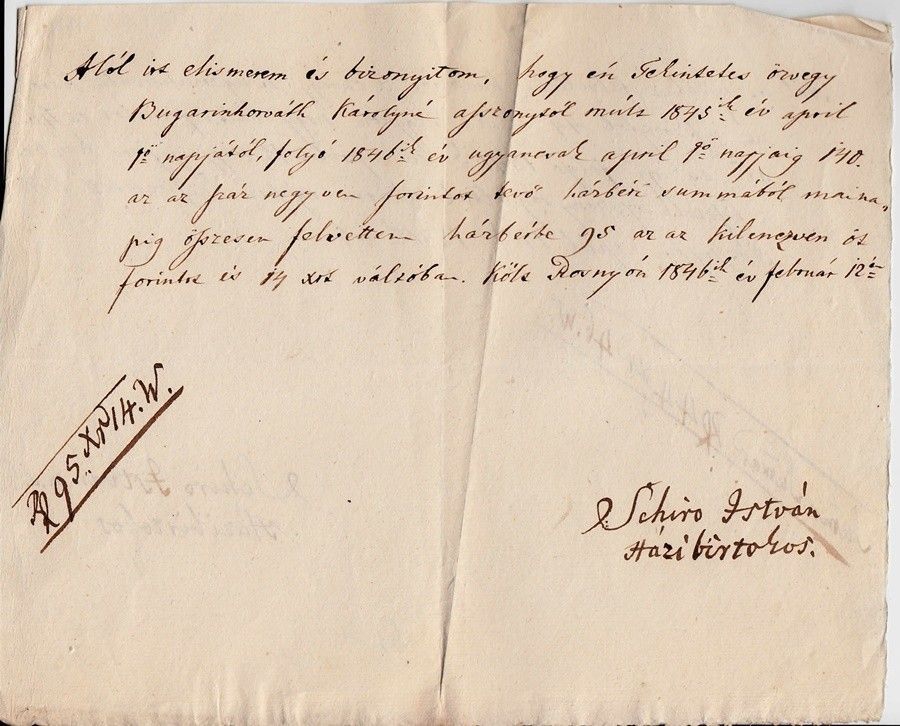 Alól irt elismerem és bizonyitom, hogy én Tekintetes özvegy
Bugarinhorváth Károlyné asszonytól múlt 1845ik év april
1ső napjától, folyó 1846ik év ugyancsak april 1ső napjaig 140.
az az száz negyven forintot tevő házbéri summából maina,
pig összesen felvettem házbérbe 95 az az kilenczven öt
forintot és 14 xrt váltóba. Költ Rosnyón 1846ik év február 12én
Rf 95. Xr 14. W.
Schiro István
Házi birtokos.